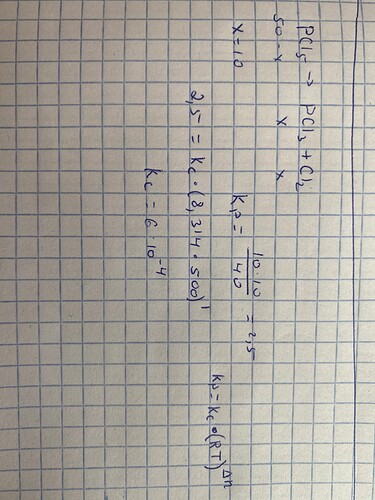 PCl₅ → PCl₃ + Cl₂
50-x x x
x = 10
Kp = 10·10 / 40 = 2,5
Kp = Kc • (RT)^Δn
2,5 = Kc • (8,314 · 500)¹
Kc = 6 · 10⁻⁴